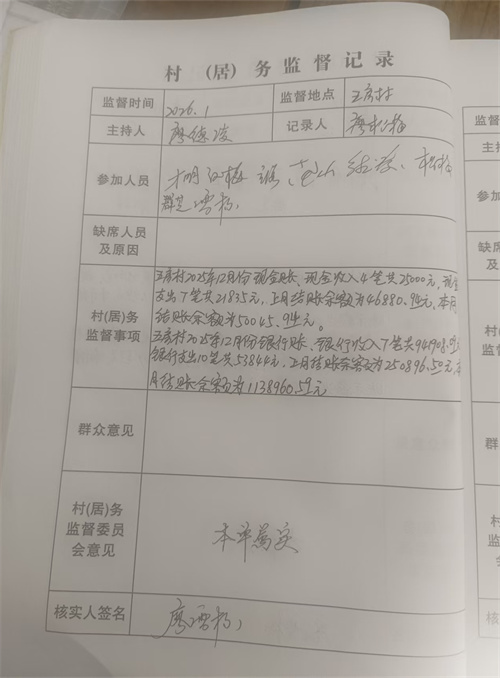 村 (居) 务监督记录
监督时间 2026.1 监督地点 王房村
主持人 廖德凌 记录人
参加人员
缺席人员
及原因
村(居)务
监督事项
王房村2025年12月份现金账、现金收入4笔共25000元,现金
支出7笔共21835元,上月结账余额为46880.94元、本月
结账余额为50045.94元。
王房村2025年12月份银行账、银行收入7笔共941908.0
银行支出10笔共53844元,上月结账余额为250896.50元
月结账余额为1138960.59元
群众意见
村(居)务
监督委员
会意见
本单属实
核实人签名 廖雪梅